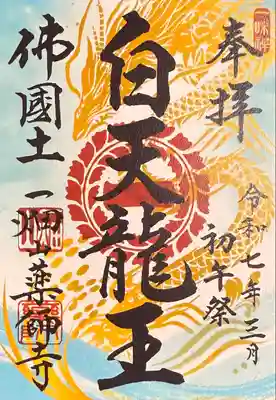 奉拝
令和七年三月
初午祭
白天龍王
佛國土一畑山薬師寺